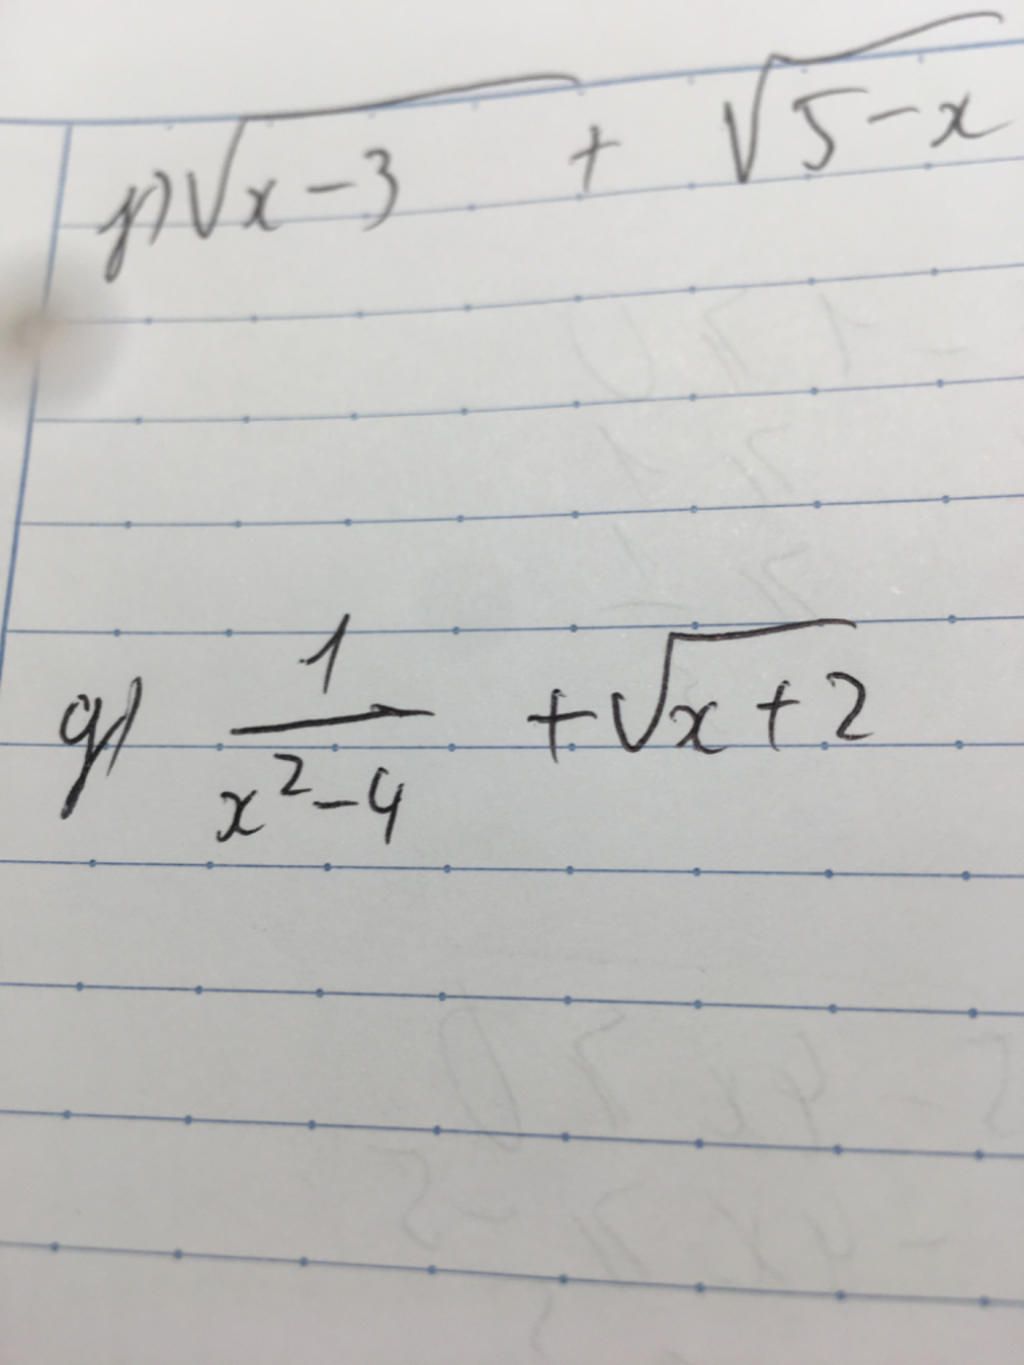 f) √x-3 + √5-x
g) 1/x²-4 + √x+2